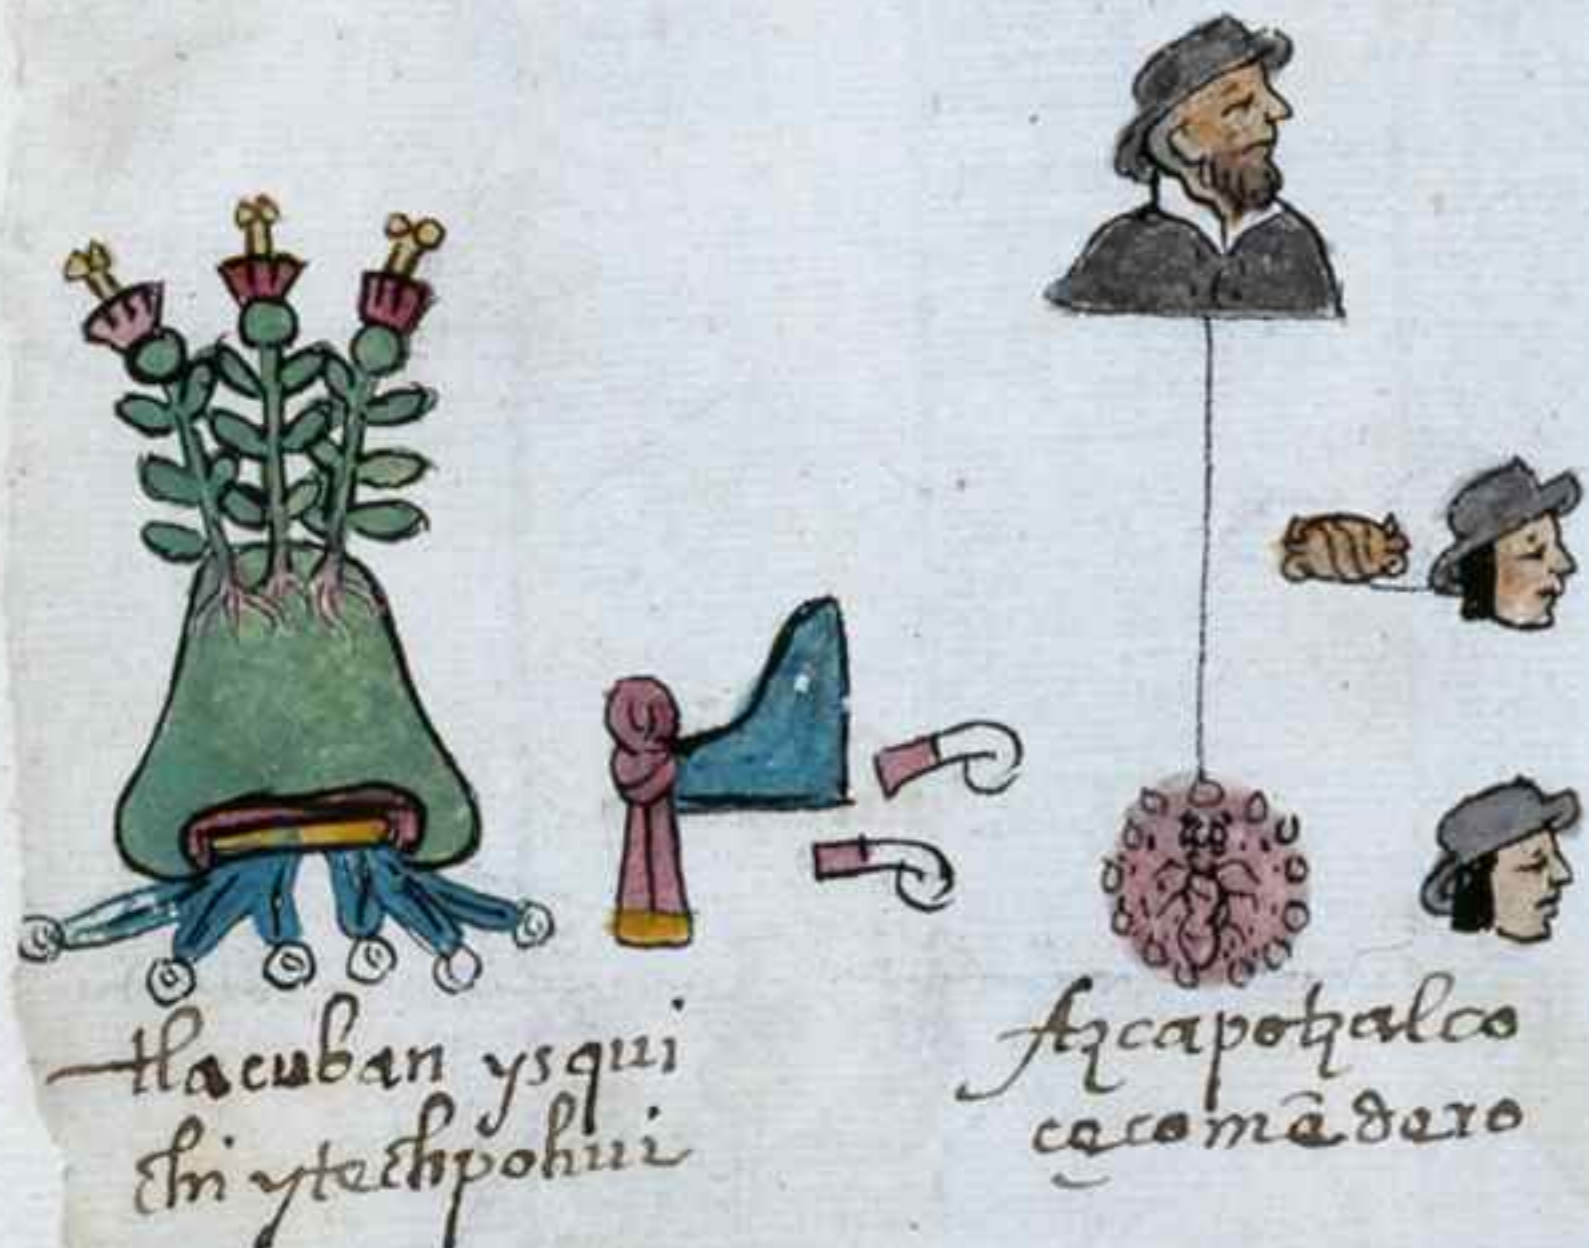 tlacuban ysqui
chi ytechpohui
Azcapotzalco
ēcomēdero